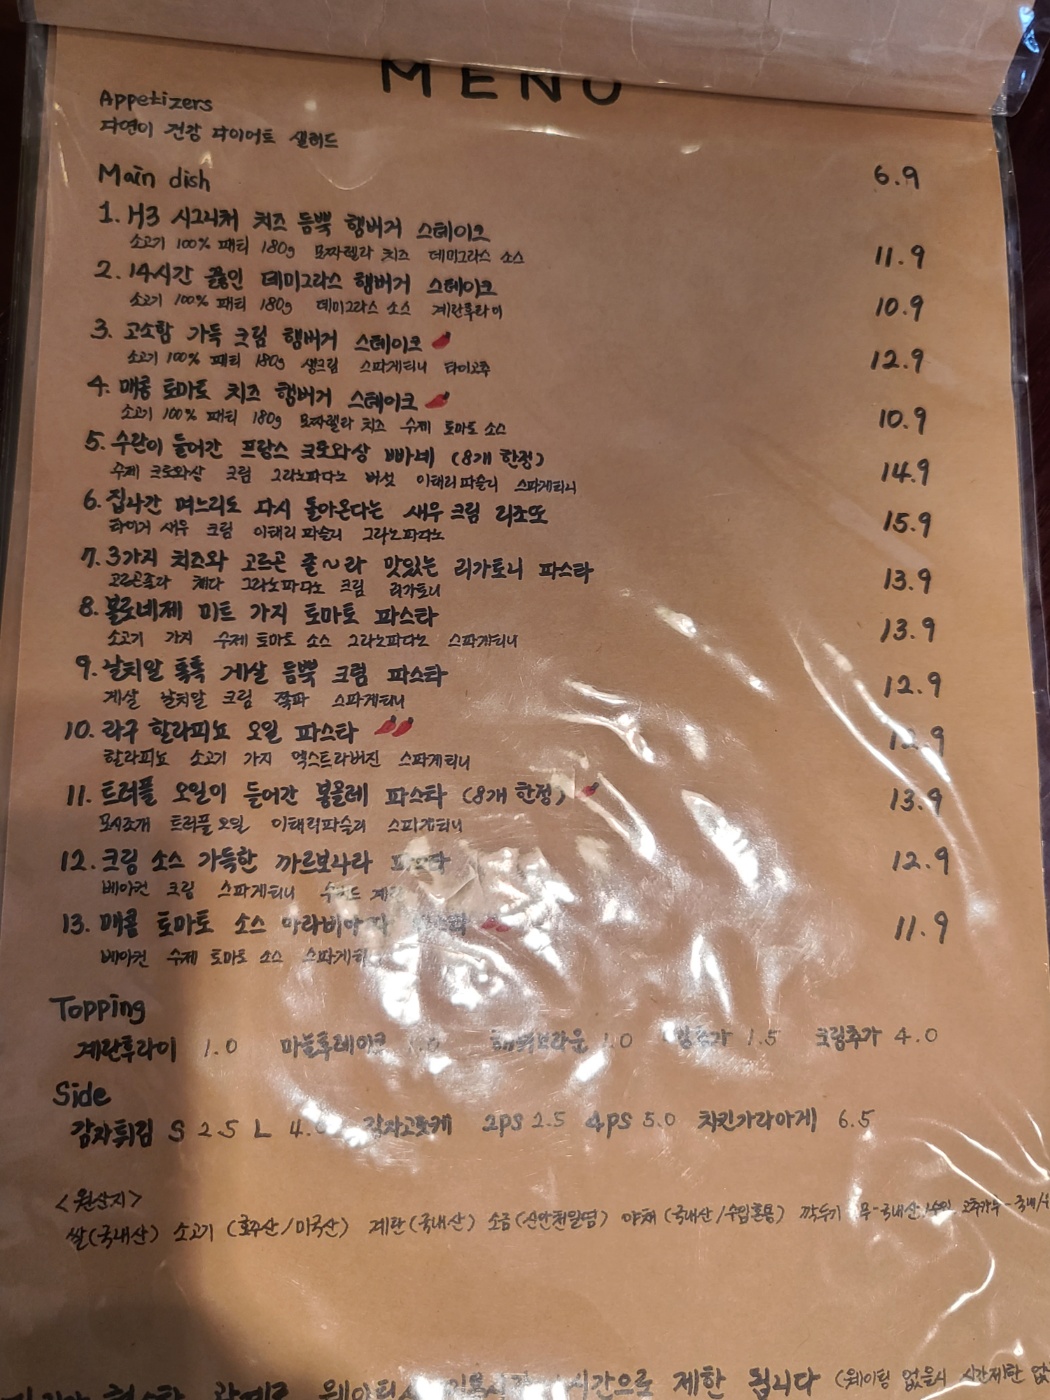 MENU
Appetizers
다연이 건강 다이어트 샐러드 6.9
Main dish
1. H3 시그니처 치즈 듬뿍 햄버거 스테이크 11.9
소고기 100% 패티 180g 모짜렐라 치즈 데미그라스 소스
2. 14시간 끓인 데미그라스 햄버거 스테이크 10.9
소고기 100% 패티 180g 데미그라스 소스 계란후라이
3. 고소함 가득 크림 햄버거 스테이크 12.9
소고기 100% 패티 180g 생크림 스파게티니 타이고추
4. 매콤 토마토 치즈 햄버거 스테이크 10.9
소고기 100% 패티 180g 모짜렐라 치즈 수제 토마토 소스
5. 수란이 들어간 프랑스 크로와상 빠네 (8개 한정) 14.9
수제 크로와상 크림 그라노파다노 버섯 이태리파슬리 스파게티니
6. 집나간 며느리도 다시 돌아온다는 새우 크림 리조또 15.9
타이거 새우 크림 이태리파슬리 그라노파다노
7. 3가지 치즈와 고르곤 졸~라 맛있는 리가토니 파스타 13.9
고르곤졸라 체다 그라노파다노 크림 리가토니
8. 볼로네제 미트 가지 토마토 파스타 13.9
소고기 가지 수제 토마토 소스 그라노파다노 스파게티니
9. 날치알 톡톡 게살 듬뿍 크림 파스타 12.9
게살 날치알 크림 쪽파 스파게티니
10. 라구 할라피뇨 오일 파스타 12.9
할라피뇨 소고기 가지 엑스트라버진 스파게티니
11. 트러플 오일이 들어간 봉골레 파스타 (8개 한정) 13.9
모시조개 트러플오일 이태리파슬리 스파게티니
12. 크림 소스 가득한 까르보나라 파스타 12.9
베이컨 크림 스파게티니
13. 매콤 토마토 소스 아라비아따 11.9
베이컨 수제 토마토 소스 스파게티
Topping
계란후라이 1.0 마늘후레이크 1.0 해쉬브라운 1.0 1.5 크림추가 4.0
Side
감자튀김 S 2.5 L 4.0 감자고로케 2PS 2.5 4PS 5.0 치킨가라아게 6.5
<원산지>
쌀(국내산) 소고기 (호주산/미국산) 계란(국내산) 소금(신안천일염) 야채 (국내산/수입혼용) 깍두기 무-국내산 고추가루-국내
제한 됩니다 (웨이팅 없을시 시간제한